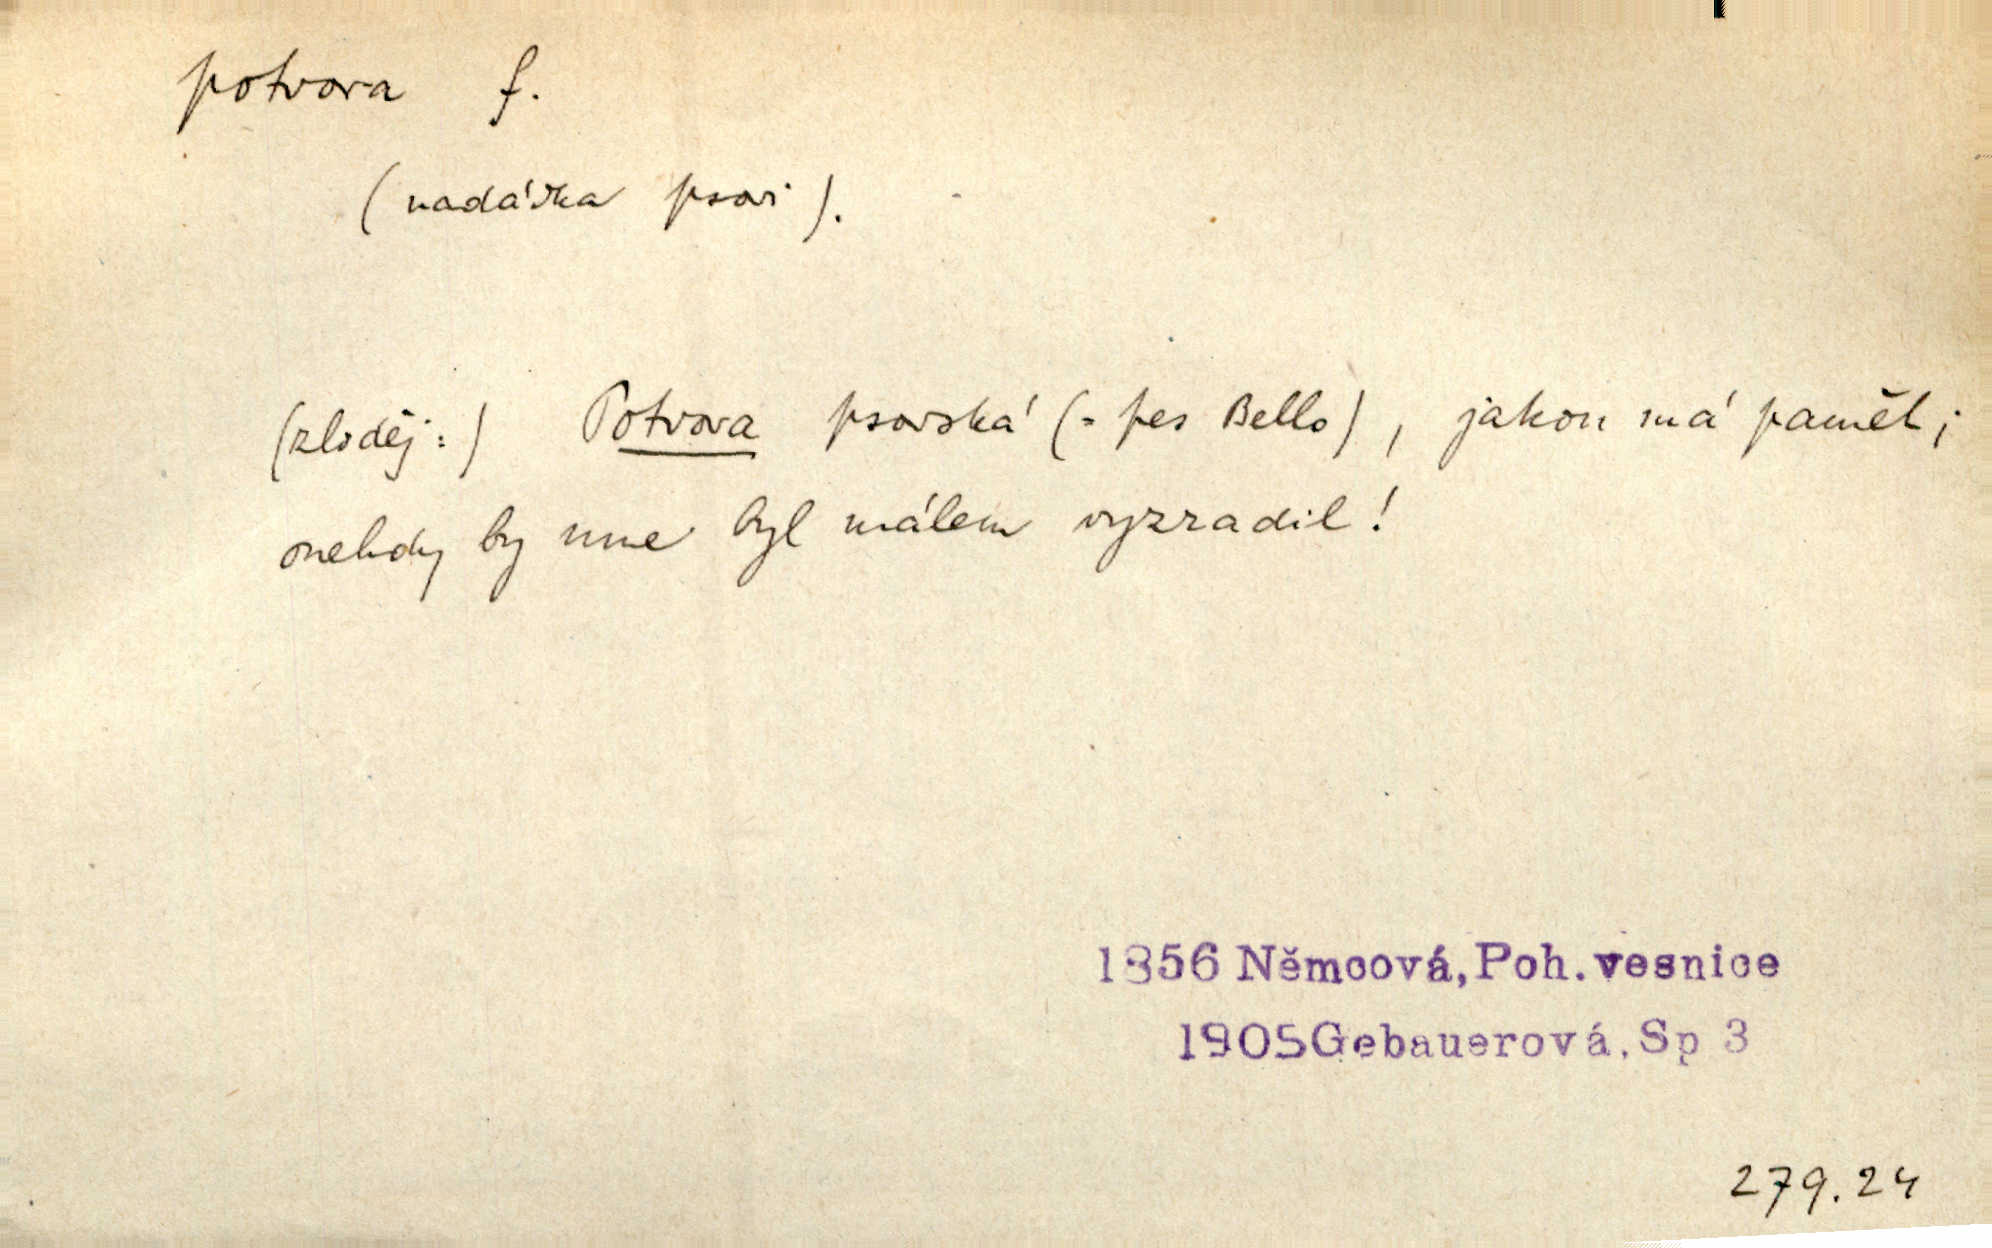 potvora f.
(nadávka psovi).
(zloděj:) Potvora psovská (= pes Bello), jakou má paměť;
onehdy by mne byl málem vyzradil!
1856 Němcová, Poh. vesnice
1905 Gebauerová, Sp 3
279.24